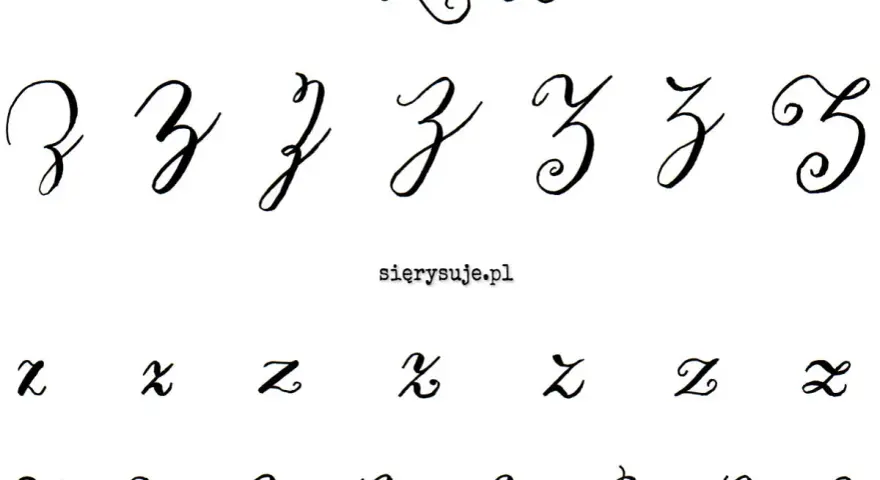 Z Z Z Z Z Z Z
sięrysuje.pl
z z z z z z z